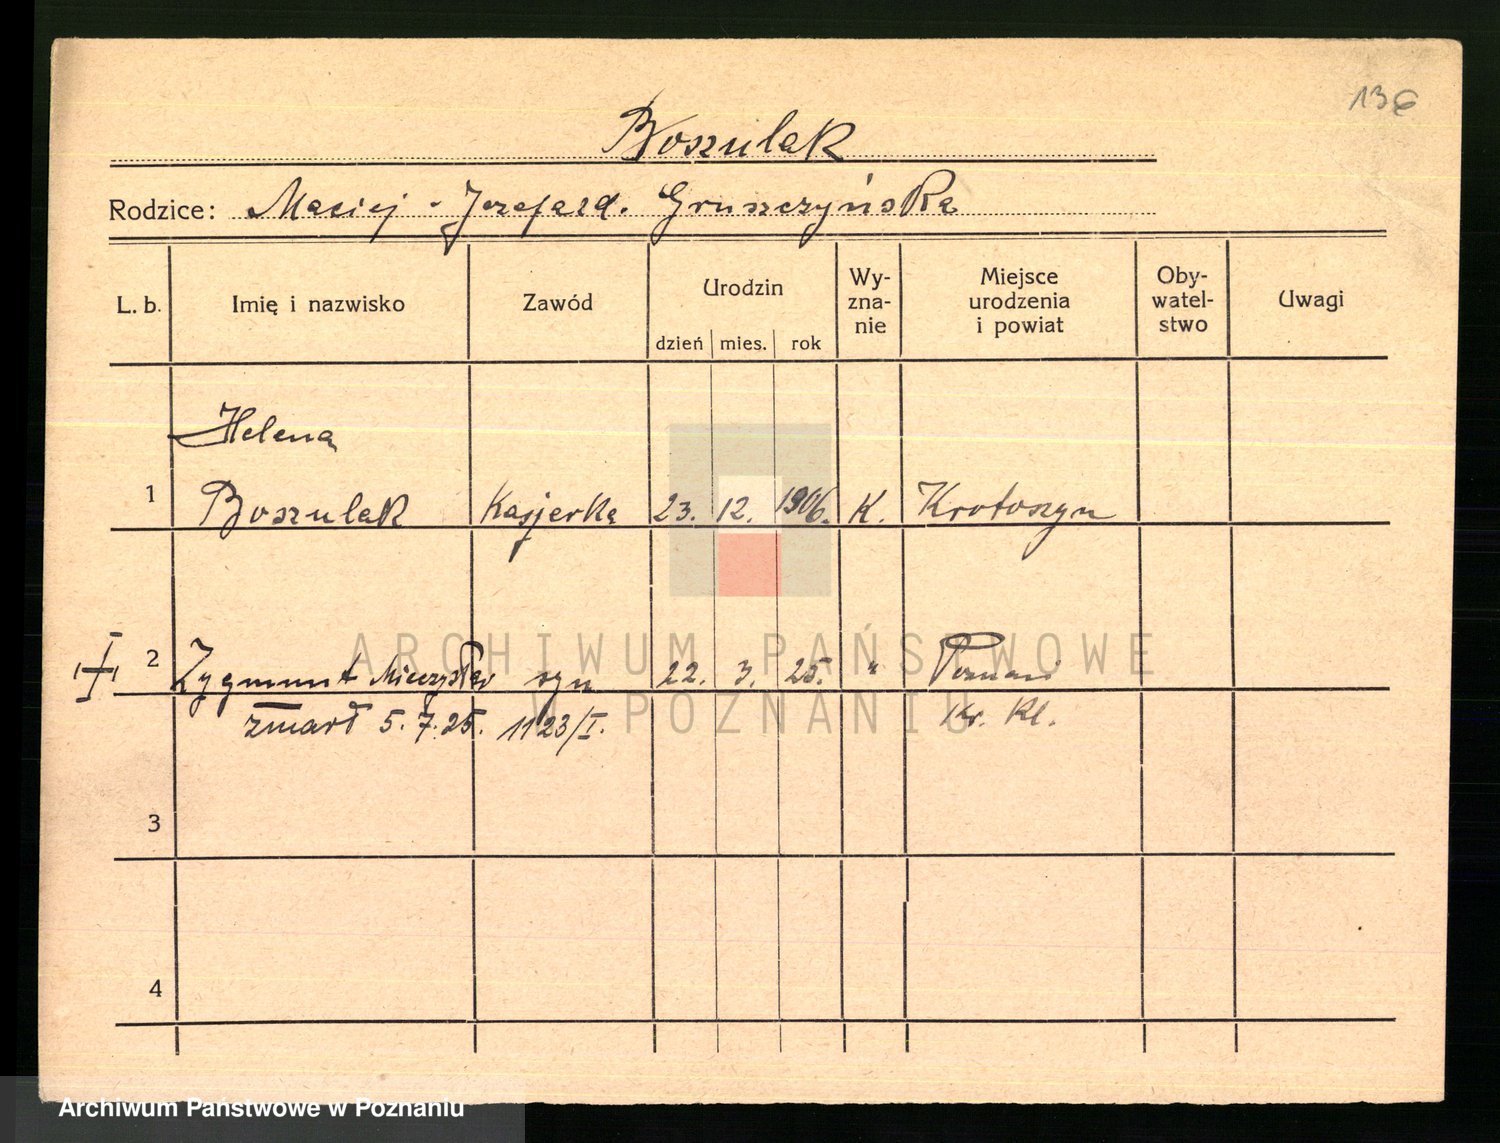 136
Boszulak
Rodzice: Maciej - Jozefa zd. Gruszczyńska
L. b.
Imię i nazwisko
Zawód
Urodzin
dzień
mies.
rok
Wy-
zna-
nie
Miejsce
urodzenia
i powiat
Oby-
watel-
stwo
Uwagi
Helena
1 Boszulak Kasjerka 23. 12. 1906. K. Krotoszyn
2 Zygmunt Mieczysław syn 22. 3. 25. " Poznań
zmarł 5.7.25. 1123/I. Kr. Kl.
3
4
ARCHIWUM PAŃSTWOWE
W POZNANIU
Archiwum Państwowe w Poznaniu